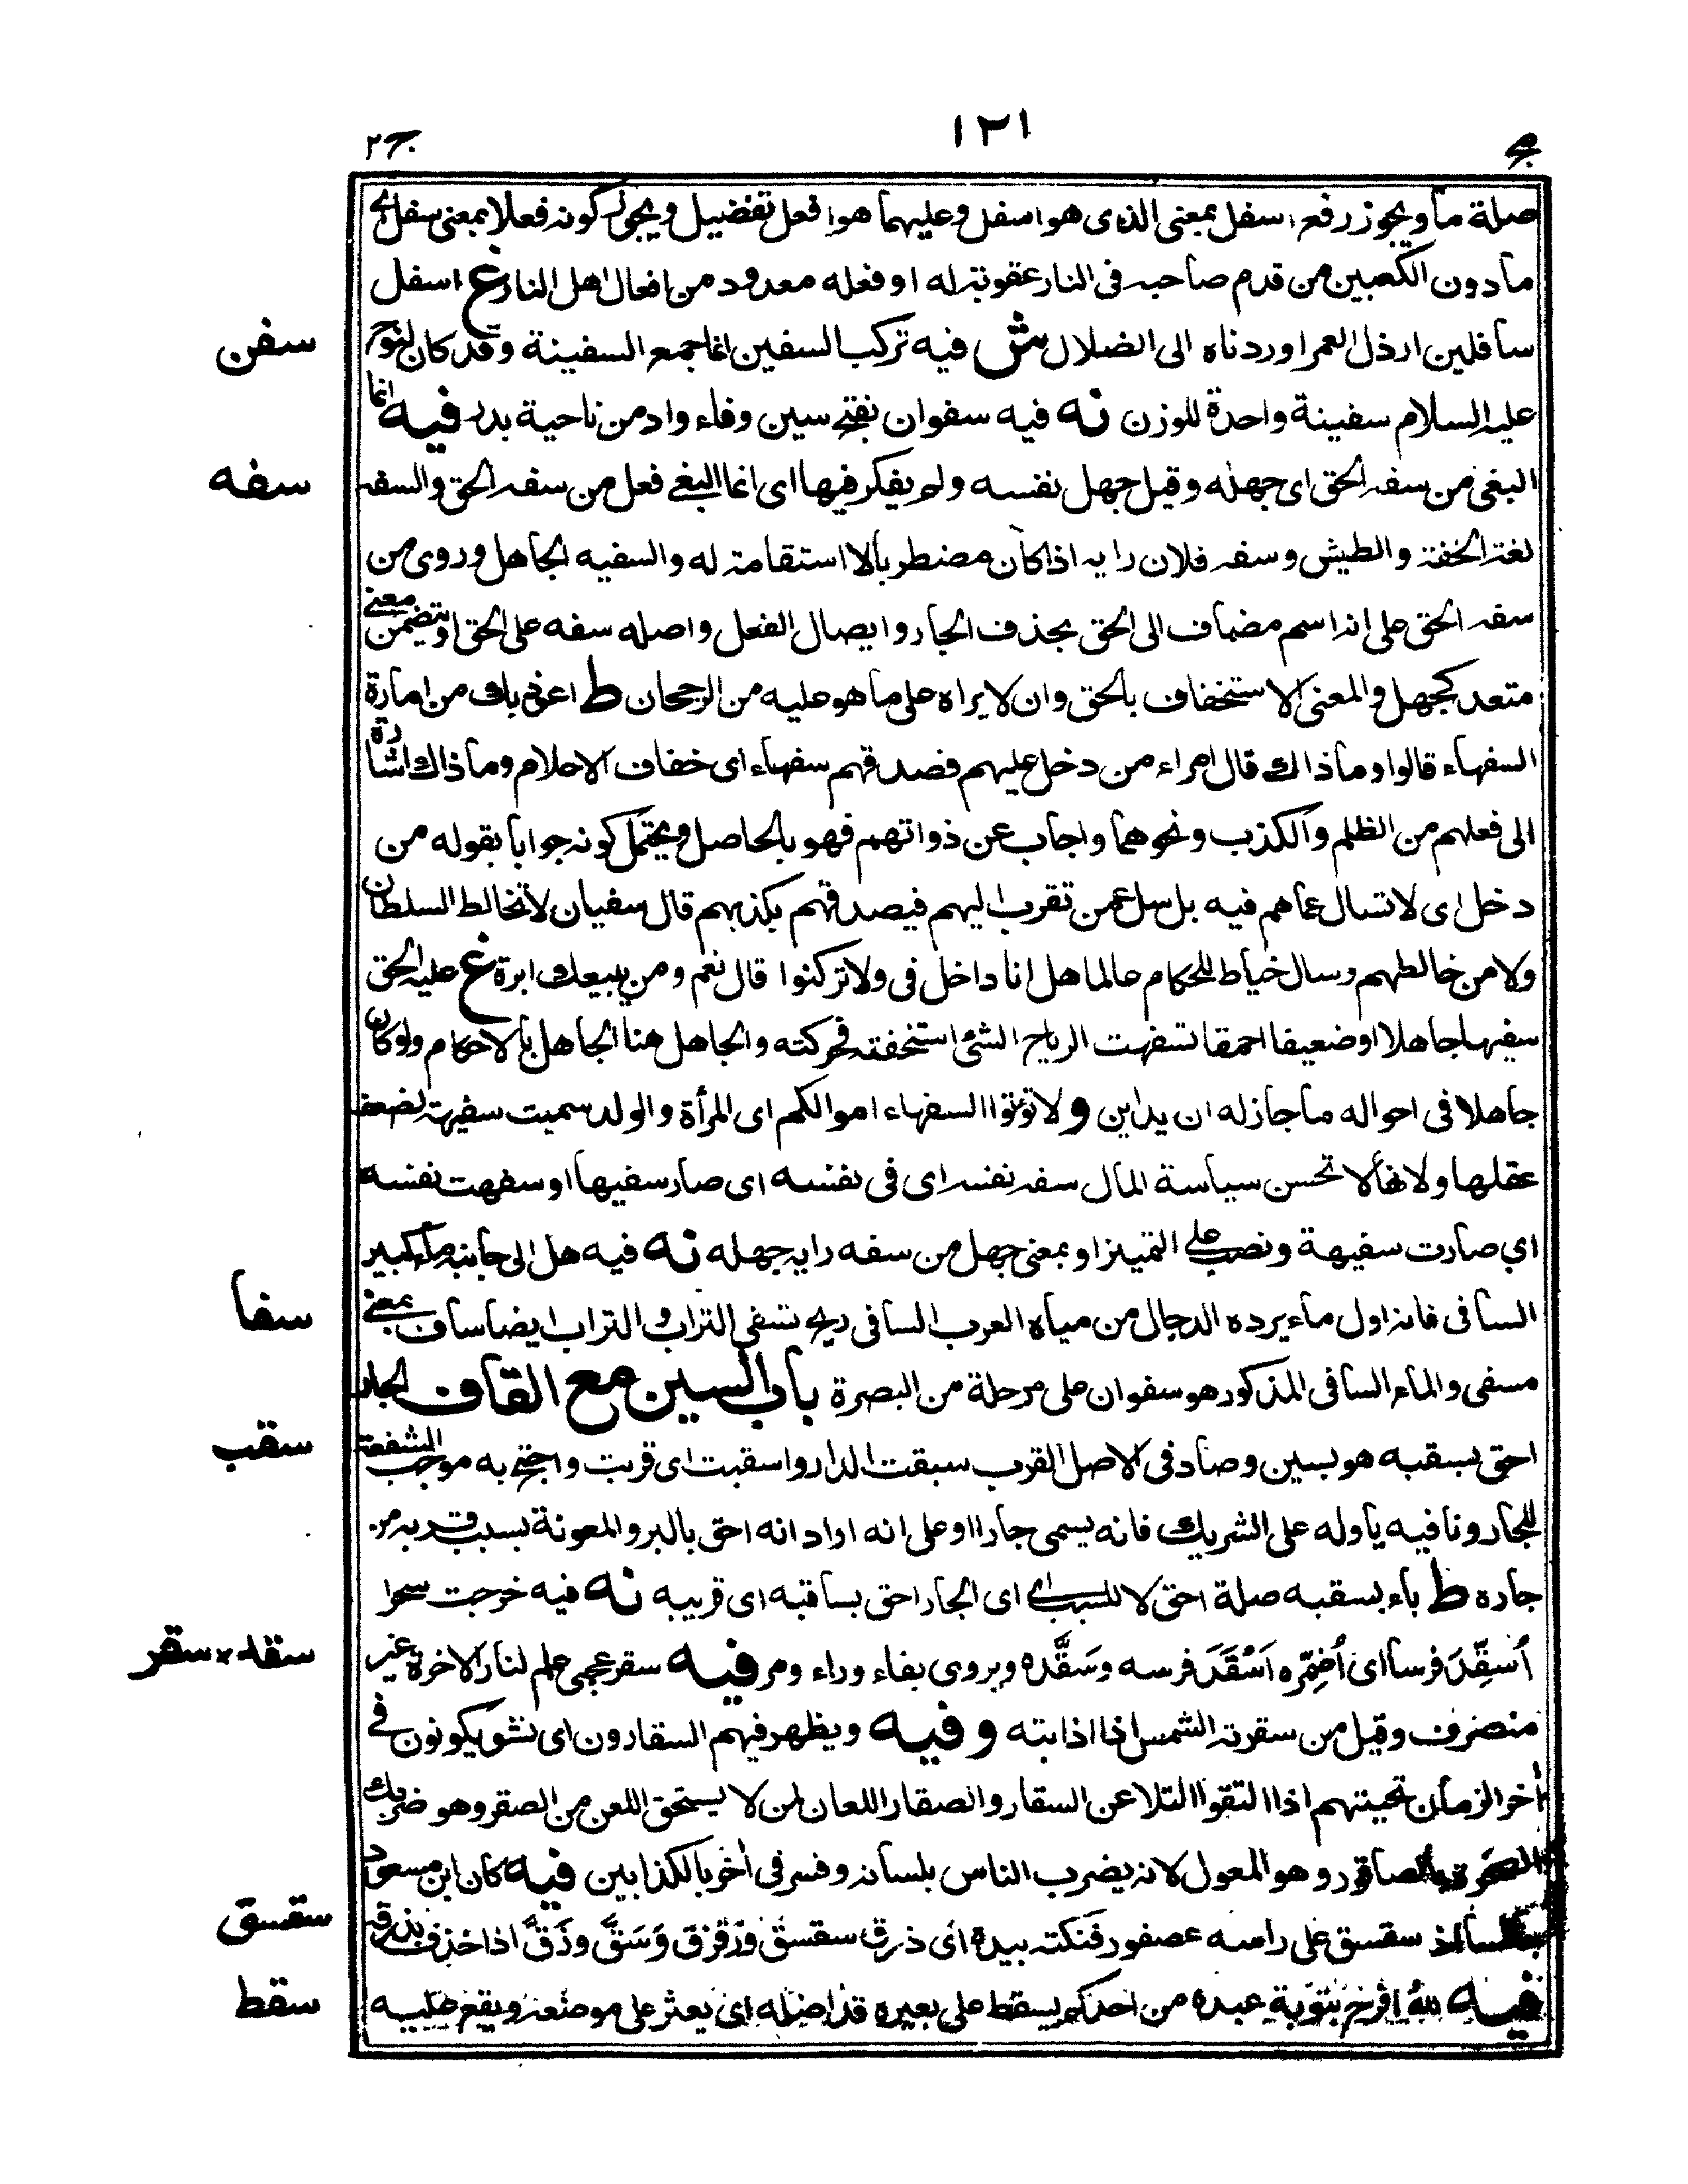 ١٢١
ج٢
صلة ما ويجوز رفع اسفل بمعنى الذى هو اسفل وعليهما هو افعل تفضيل ويجوز كونه فعلا بمعنى سفل اى
ما دون الكعبين من قدم صاحبه فى النار عقوبة له او فعله معدود من افعال اهل النار غ اسفل
سافلين ارذل العمر او رددناه الى الضلال ش فيه تركب السفين انما جمع السفينة وقد كان لنوح
سفن
عليه السلام سفينة واحدة للوزن نه فيه سفوان بفتح سين وفاء واد من ناحية بدر فيه انما
البغى من سفه الحق اى جهله وقيل جهل نفسه ولم يفكر فيها اى انما البغى فعل من سفه الحق والسفه
سفه
لغة الخفة والطيش وسفه فلان رايه اذا كان مضطربا لا استقامة له والسفيه الجاهل وروى من
سفه الحق على انه اسم مضاف الى الحق بحذف الجار وايصال الفعل واصله سفه على الحق او بتضمن معنى
متعد كجهل والمعنى الاستخفاف بالحق وان لا يراه على ما هو عليه من الرجحان ط اعوذ بك من امارة
السفهاء قالوا وما ذاك قال امراء من دخل عليهم فصدقهم سفهاء اى خفاف الاحلام وما ذاك اشارة
الى فعلهم من الظلم والكذب ونحوهما واجاب عن ذواتهم فهو بالحاصل ويحتمل كونه جوابا بقوله من
دخل اى لا تسال عما هم فيه بل سل عمن تقرب اليهم فيصدقهم بكذبهم قال سفيان لا تخالط السلطان
ولا من خالطهم وسال خياط للحكام عالما هل انا داخل فى ولا تركنوا قال نعم ومن يبيعك ابرة غ عليه الحق
سفيها جاهلا او ضعيفا احمقا تسفهت الرياح الشئ استخفته فحركته والجاهل هنا الجاهل بالاحكام ولو كان
جاهلا فى احواله ما جاز له ان يداين و لا تؤتوا السفهاء اموالكم اى المرأة والولد سميت سفيهة لضعف
عقلها ولانها لا تحسن سياسة المال سفه نفسه اى فى نفسه اى صار سفيها او سفهت نفسه
اي صارت سفيهة ونصب على التميز او بمعنى جهل من سفه رايه جهله نه فيه هل الى جانبه ماء كبير
السافى فانه اول ماء يرده الدجال من مياه العرب السافى ريح تسفى التراب والتراب ايضا ساف بمعنى
سفا
مسفى والماء السافى المذكور هو سفوان على مرحلة من البصرة باب السين مع القاف الجار
احق بسقبه هو بسين وصاد فى الاصل القرب سبقت الدار واسقبت اى قربت واحتج به موجب الشفعة
سقب
للجار ونافيه ياوله على الشريك فانه يسمى جارا او على انه اراد انه احق بالبر والمعونة بسبب قربه من
جاره ط باء بسقبه صلة احق لا للسبب اى الجار احق بساقبه اى قريبه نه فيه خرجت سحرا
أُسقِّدَ فرسا اى أُضمِّره اَسْقَدَ فرسه وسَقَّده ويروى بفاء وراء ومر فيه سقر عجمى علم لنار الاخرة غير
سقد × سقر
منصرف وقيل من سقرته الشمس اذا اذابته وفيه ويظهر فيهم السقارون اى نشو يكونون فى
أخر الزمان تحيتهم اذا التقوا التلاعن السقار والصقار اللعان لمن لا يستحق اللعن من الصقر وهو ضربك
الصخرة بالصاقور وهو المعول لانه يضرب الناس بلسانه وفسر فى أخر بالكذابين فيه كان ابن مسعود
اذ سقسق على راسه عصفور فنكته بيده اى ذرق سقسق وزقزق وَسَقَّ وزَقَّ اذا خذف بذرقه
سقسق
فيه لله افرح بتوبة عبده من احدكم يسقط على بعيره قد اضله اى يعثر على موضعه ويقع عليه
سقط